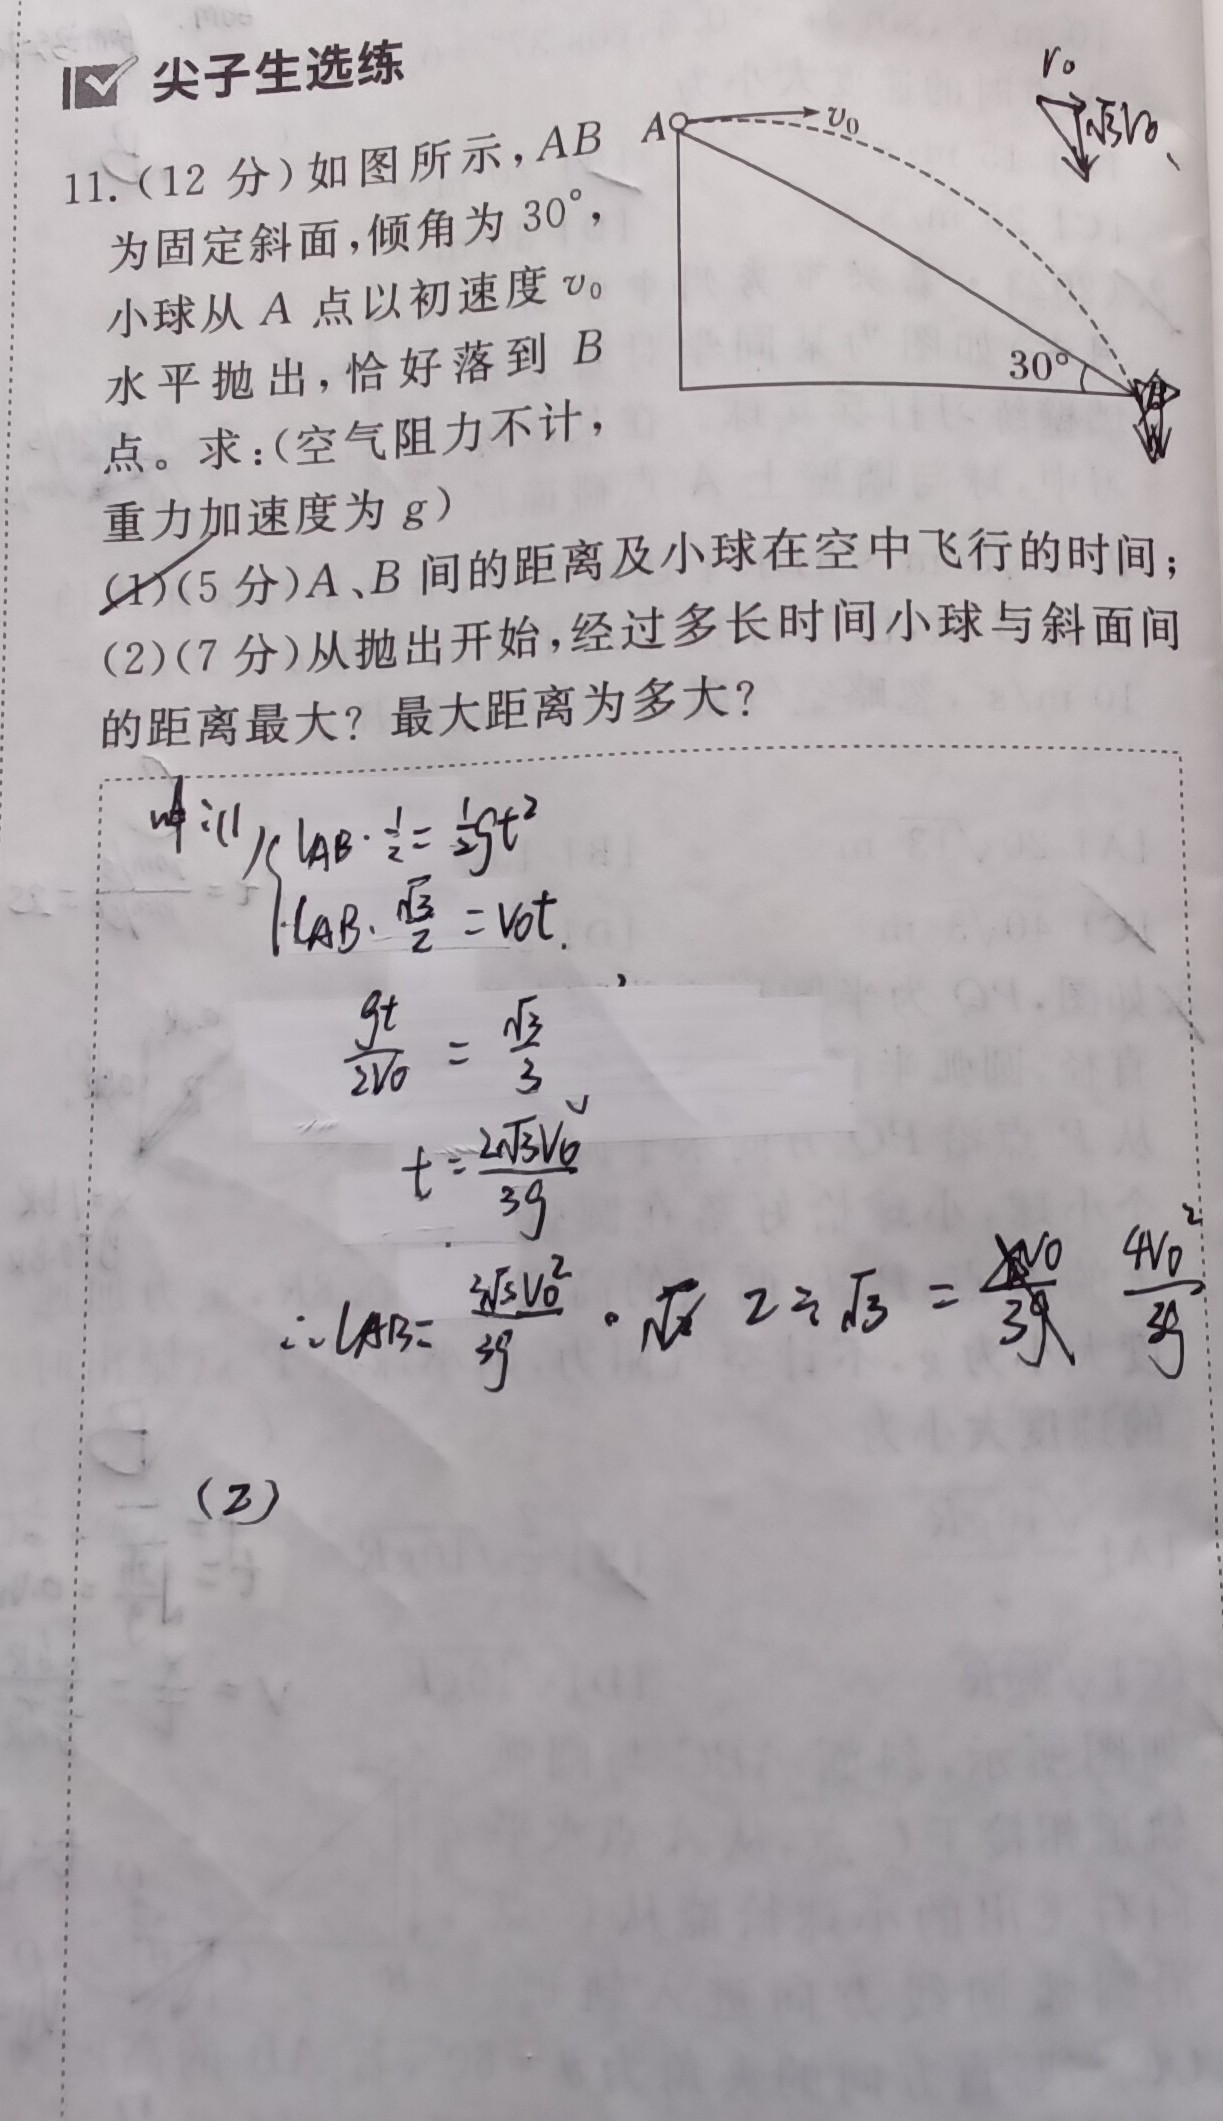 尖子生选练
11.(12 分)如图所示,AB
为固定斜面,倾角为 30°,
小球从 A 点以初速度 v₀
水平抛出,恰好落到 B
点。求:(空气阻力不计,
重力加速度为 g)
A
v₀
30°
V₀
√3V₀
(1)(5 分)A、B 间的距离及小球在空中飞行的时间;
(2)(7 分)从抛出开始,经过多长时间小球与斜面间
的距离最大?最大距离为多大?
(1) LAB·1/2 = 1/2gt²
LAB·√3/2 = V₀t.
gt/2V₀ = √3/3
t = 2√3V₀/3g
∴LAB = 2√3V₀²/3g · 2÷√3 = 4V₀²/3g
(2)